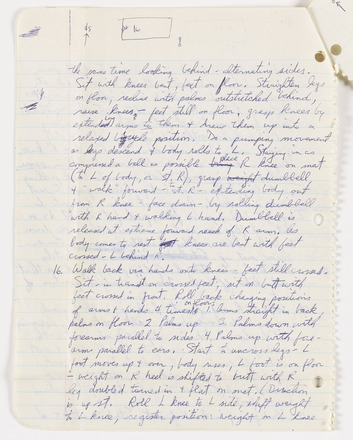 the same time looking behind - alternating sides.
Sit with knees bent, feet on floor. Straighten legs
on floor, recline with palms outstretched behind,
raise knees, feet still on floor, grasp knees by
extended arms & draw them up into a
relaxed position. Do a pumping movement
as legs descend & body rolls to L. Staying in as
compressed a ball as possible place R knee on mat
(to L of body, or st. R), grasp dumbbell
& "walk" forward - st. R - extending body out
from R knee - face down - by rolling dumbbell
with R hand & walking L hand. Dumbbell is
released at extreme forward reach of R arm. As
body comes to rest knees are bent with feet
crossed - L behind R.
16. Walk back via hands onto knees - feet still crossed.
Sit - in on crossed feet, sit on butt with
feet crossed in front. Roll back changing positions
of arms & hands 4 times on floor: 1. Arms straight in back
palms on floor 2. Palms up 3. Palms down, with
forearms parallel to sides 4. Palms up with fore-
arms parallel to ears. Start to uncross legs - L
foot moves up & over, body rises, L foot is on floor
- weight on R heel is shifted to butt with R
leg doubled turned in & flat on mat. (Direction
is up st. Roll L knee to L side, shift weight
to L knee, register position: weight on L knee